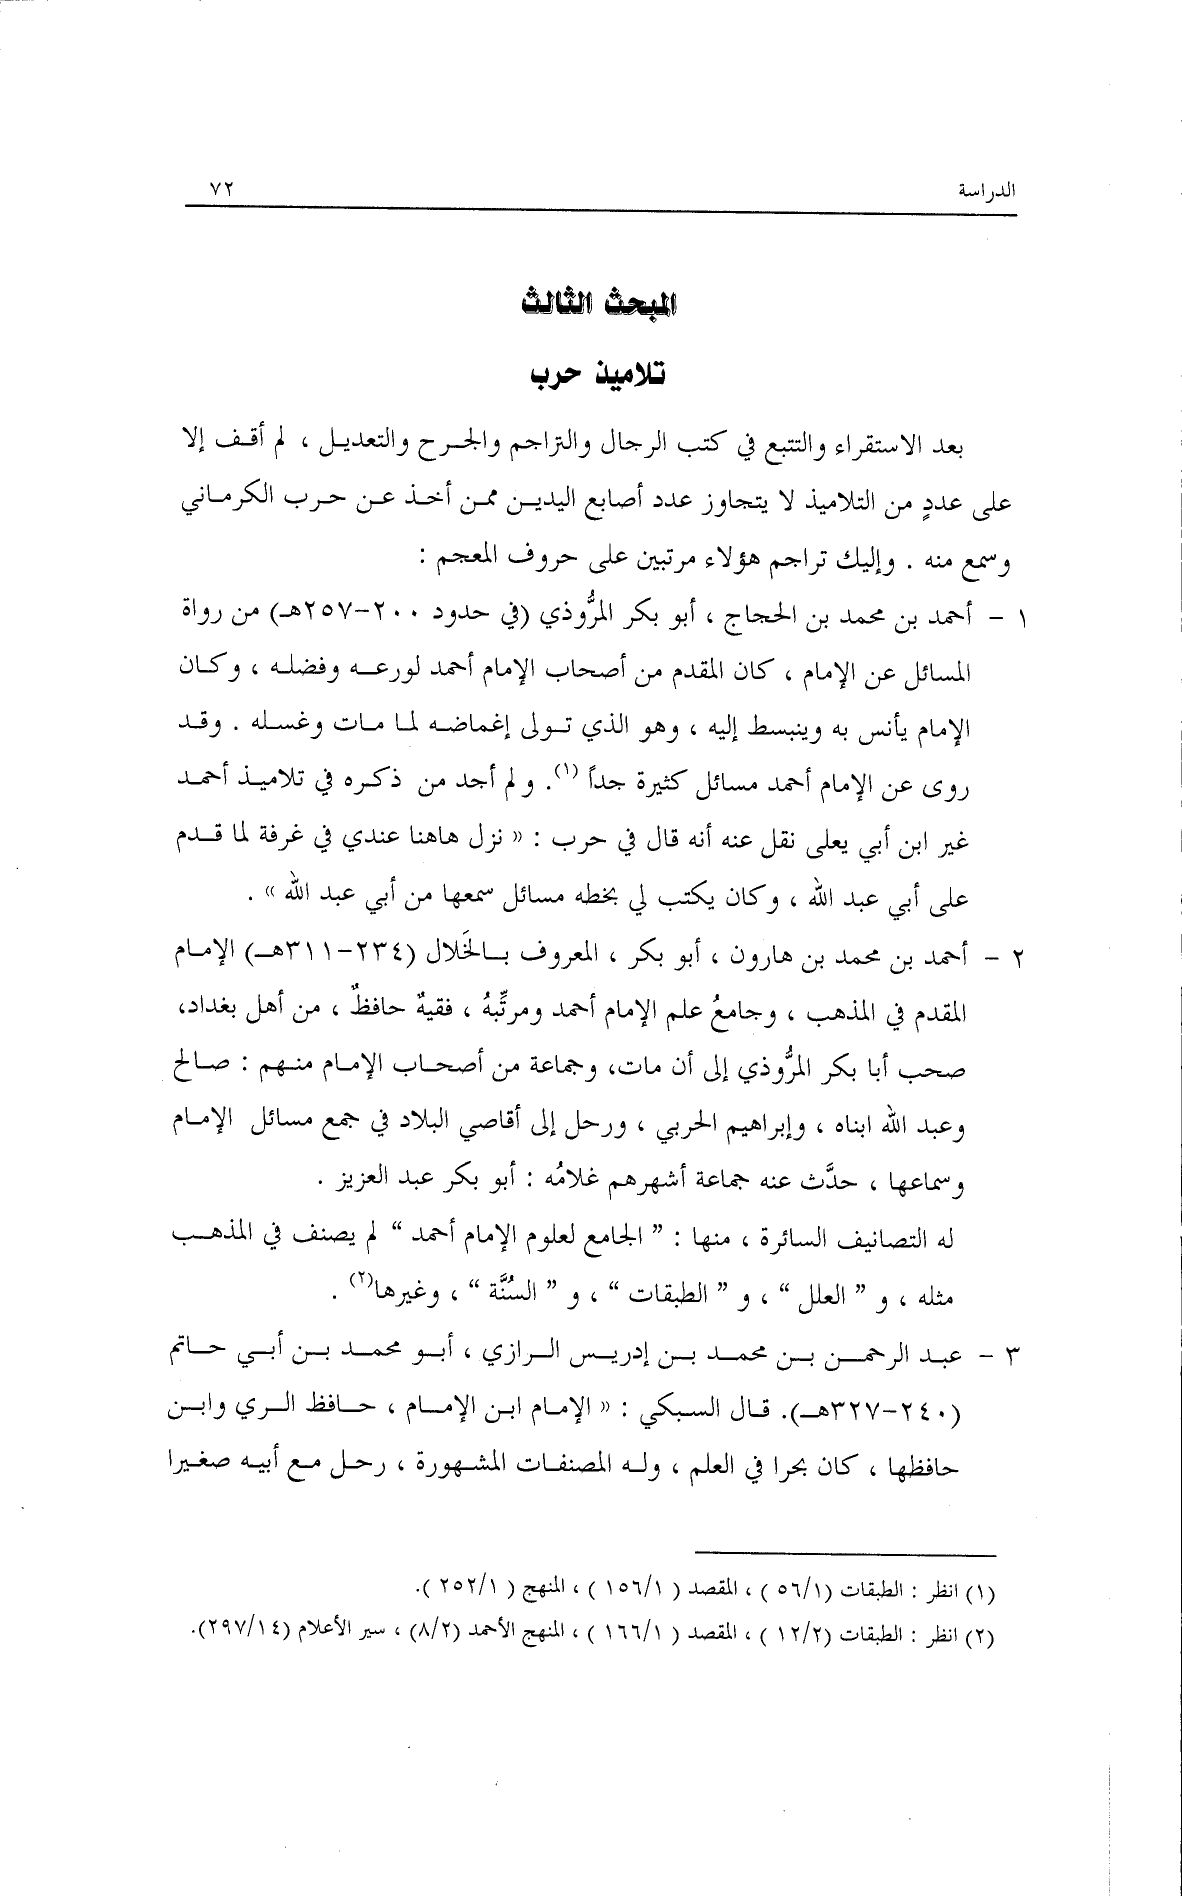 الدراسة ٧٢
المبحث الثالث
تلاميذ حرب
بعد الاستقراء والتتبع في كتب الرجال والتراجم والجرح والتعديل ، لم أقف إلا
على عددٍ من التلاميذ لا يتجاوز عدد أصابع اليدين ممن أخذ عن حرب الكرماني
وسمع منه . وإليك تراجم هؤلاء مرتبين على حروف المعجم :
١ - أحمد بن محمد بن الحجاج ، أبو بكر المرُّوذي (في حدود ٢٠٠-٢٥٧هـ) من رواة
المسائل عن الإمام ، كان المقدم من أصحاب الإمام أحمد لورعه وفضله ، وكان
الإمام يأنس به وينبسط إليه ، وهو الذي تولى إغماضه لما مات وغسله . وقد
روى عن الإمام أحمد مسائل كثيرة جداً (١). ولم أجد من ذكره في تلاميذ أحمد
غير ابن أبي يعلى نقل عنه أنه قال في حرب : « نزل هاهنا عندي في غرفة لما قدم
على أبي عبد الله ، وكان يكتب لي بخطه مسائل سمعها من أبي عبد الله » .
٢ - أحمد بن محمد بن هارون ، أبو بكر ، المعروف بالخَلال (٢٣٤-٣١١هـ) الإمام
المقدم في المذهب ، وجامعُ علم الإمام أحمد ومرتِّبهُ ، فقيهٌ حافظٌ ، من أهل بغداد،
صحب أبا بكر المرُّوذي إلى أن مات، وجماعة من أصحاب الإمام منهم : صالح
وعبد الله ابناه ، وإبراهيم الحربي ، ورحل إلى أقاصي البلاد في جمع مسائل الإمام
وسماعها ، حدَّث عنه جماعة أشهرهم غلامُه : أبو بكر عبد العزيز .
له التصانيف السائرة ، منها : ” الجامع لعلوم الإمام أحمد “ لم يصنف في المذهب
مثله ، و ” العلل “ ، و ” الطبقات “ ، و ” السُنَّة “ ، وغيرها(٢) .
٣ - عبد الرحمن بن محمد بن إدريس الرازي ، أبو محمد بن أبي حاتم
(٢٤٠-٣٢٧هـ). قال السبكي : « الإمام ابن الإمام ، حافظ الري وابن
حافظها ، كان بحرا في العلم ، وله المصنفات المشهورة ، رحل مع أبيه صغيرا
(١) انظر : الطبقات (٥٦/١ ) ، المقصد ( ١٥٦/١ ) ، المنهج ( ٢٥٢/١ ).
(٢) انظر : الطبقات (١٢/٢ ) ، المقصد ( ١٦٦/١ ) ، المنهج الأحمد (٨/٢) ، سير الأعلام (٢٩٧/١٤).